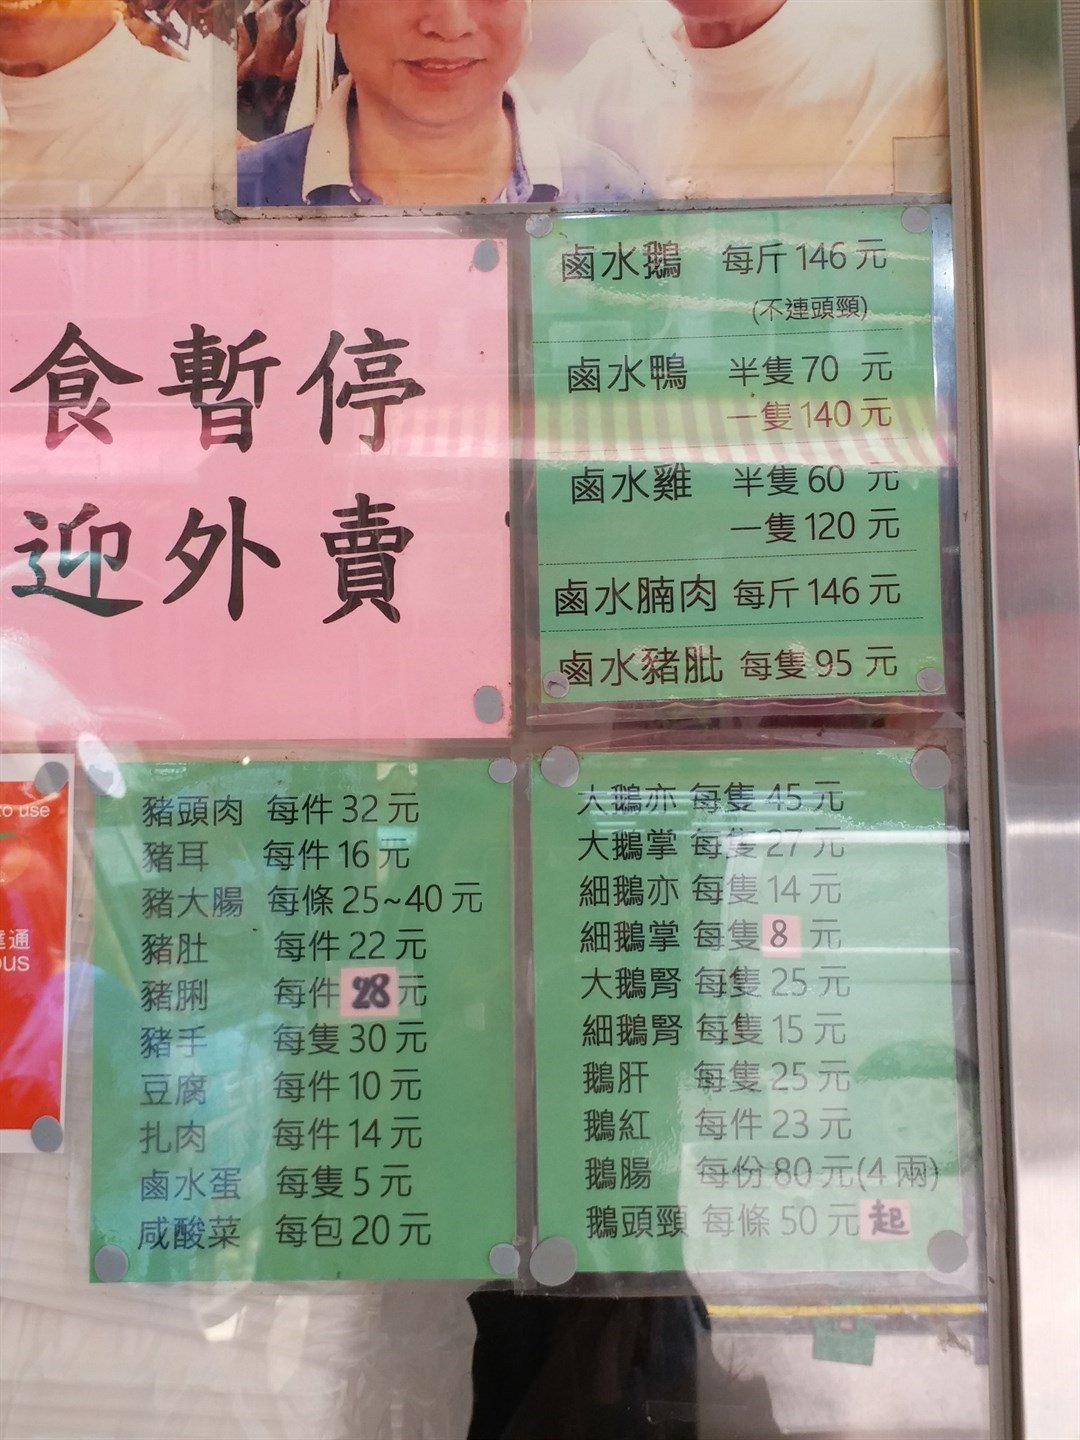 食暫停
迎外賣
鹵水鵝 每斤 146 元
(不連頭頸)
鹵水鴨 半隻 70 元
一隻 140 元
鹵水雞 半隻 60 元
一隻 120 元
鹵水腩肉 每斤 146 元
鹵水豬肶 每隻 95 元
to use
達通
ous
豬頭肉 每件 32 元
豬耳 每件 16 元
豬大腸 每條 25~40 元
豬肚 每件 22 元
豬脷 每件 28 元
豬手 每隻 30 元
豆腐 每件 10 元
扎肉 每件 14 元
鹵水蛋 每隻 5 元
咸酸菜 每包 20 元
大鵝亦 每隻 45 元
大鵝掌 每隻 27 元
細鵝亦 每隻 14 元
細鵝掌 每隻 8 元
大鵝腎 每隻 25 元
細鵝腎 每隻 15 元
鵝肝 每隻 25 元
鵝紅 每件 23 元
鵝腸 每份 80 元(4 兩)
鵝頭頸 每條 50 元起